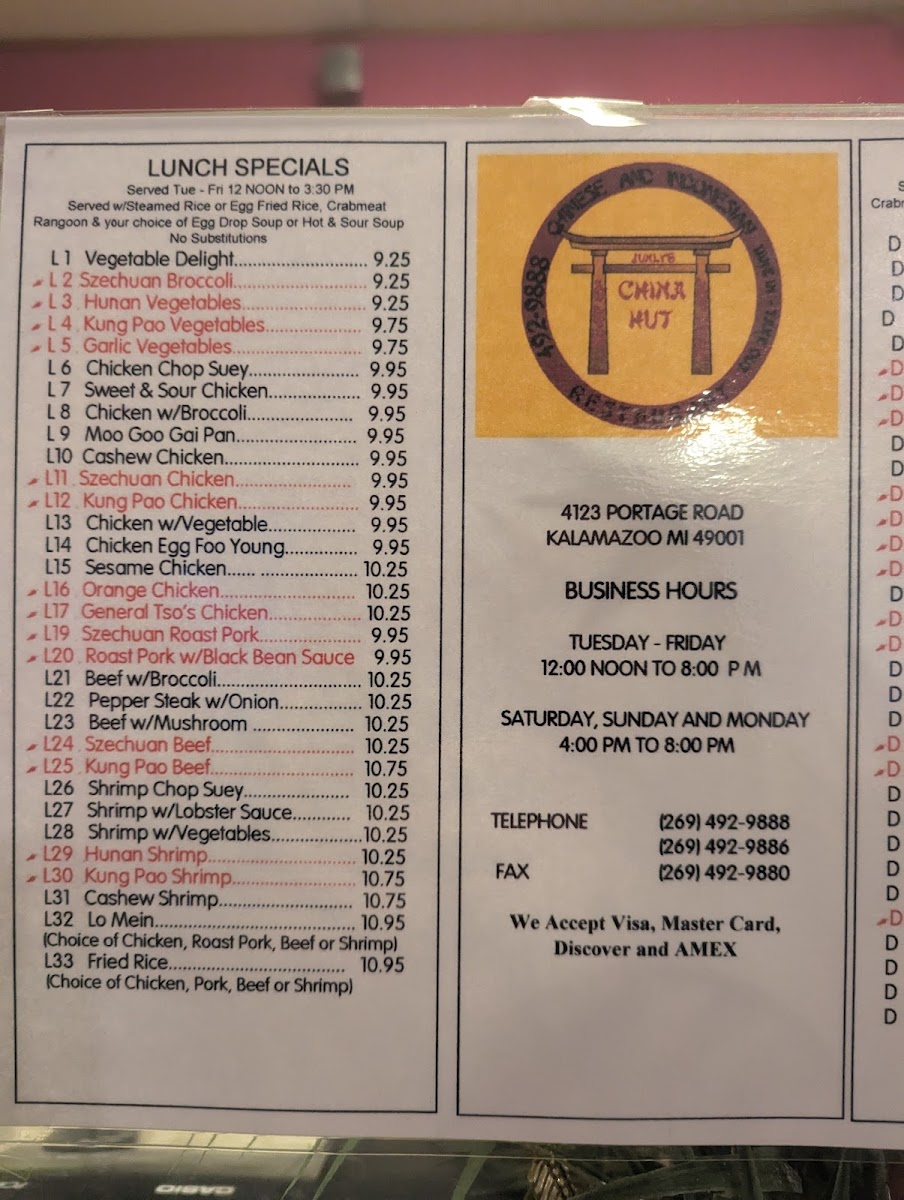 LUNCH SPECIALS
Served Tue - Fri 12 NOON to 3:30 PM
Served w/Steamed Rice or Egg Fried Rice, Crabmeat
Rangoon & your choice of Egg Drop Soup or Hot & Sour Soup
No Substitutions
L 1 Vegetable Delight.......................... 9.25
L 2 Szechuan Broccoli.......................... 9.25
L 3 . Hunan Vegetables........................ 9.25
L 4 . Kung Pao Vegetables.................... 9.75
L 5 . Garlic Vegetables.......................... 9.75
L 6 Chicken Chop Suey...................... 9.95
L 7 Sweet & Sour Chicken.................. 9.95
L 8 Chicken w/Broccoli...................... 9.95
L 9 Moo Goo Gai Pan........................ 9.95
L10 Cashew Chicken.......................... 9.95
L11 . Szechuan Chicken....................... 9.95
L12 . Kung Pao Chicken....................... 9.95
L13 Chicken w/Vegetable................. 9.95
L14 Chicken Egg Foo Young.............. 9.95
L15 Sesame Chicken...... ................... 10.25
L16 . Orange Chicken.......................... 10.25
L17 . General Tso's Chicken................. 10.25
L19 . Szechuan Roast Pork................... 9.95
L20 . Roast Pork w/Black Bean Sauce 9.95
L21 Beef w/Broccoli............................ 10.25
L22 Pepper Steak w/Onion................ 10.25
L23 Beef w/Mushroom .................... 10.25
L24 . Szechuan Beef............................ 10.25
L25 . Kung Pao Beef............................ 10.75
L26 Shrimp Chop Suey..................... 10.25
L27 Shrimp w/Lobster Sauce............ 10.25
L28 Shrimp w/Vegetables..................10.25
L29 . Hunan Shrimp............................. 10.25
L30 . Kung Pao Shrimp........................ 10.75
L31 Cashew Shrimp.......................... 10.75
L32 Lo Mein....................................... 10.95
(Choice of Chicken, Roast Pork, Beef or Shrimp)
L33 Fried Rice................................... 10.95
(Choice of Chicken, Pork, Beef or Shrimp)
492-9888 CHINESE AND INDONESIAN DINE IN - TAKE OUT
JUMLY'S
CHINA
HUT
RESTAURANT
4123 PORTAGE ROAD
KALAMAZOO MI 49001
BUSINESS HOURS
TUESDAY - FRIDAY
12:00 NOON TO 8:00 P M
SATURDAY, SUNDAY AND MONDAY
4:00 PM TO 8:00 PM
TELEPHONE (269) 492-9888
(269) 492-9886
FAX (269) 492-9880
We Accept Visa, Master Card,
Discover and AMEX
S
Crabr
D
D
D
D
D
D
D
D
D
D
D
D
D
D
D
D
D
D
D
D
D
D
D
D
D
D
D
D
D
D
D
D
CASIO